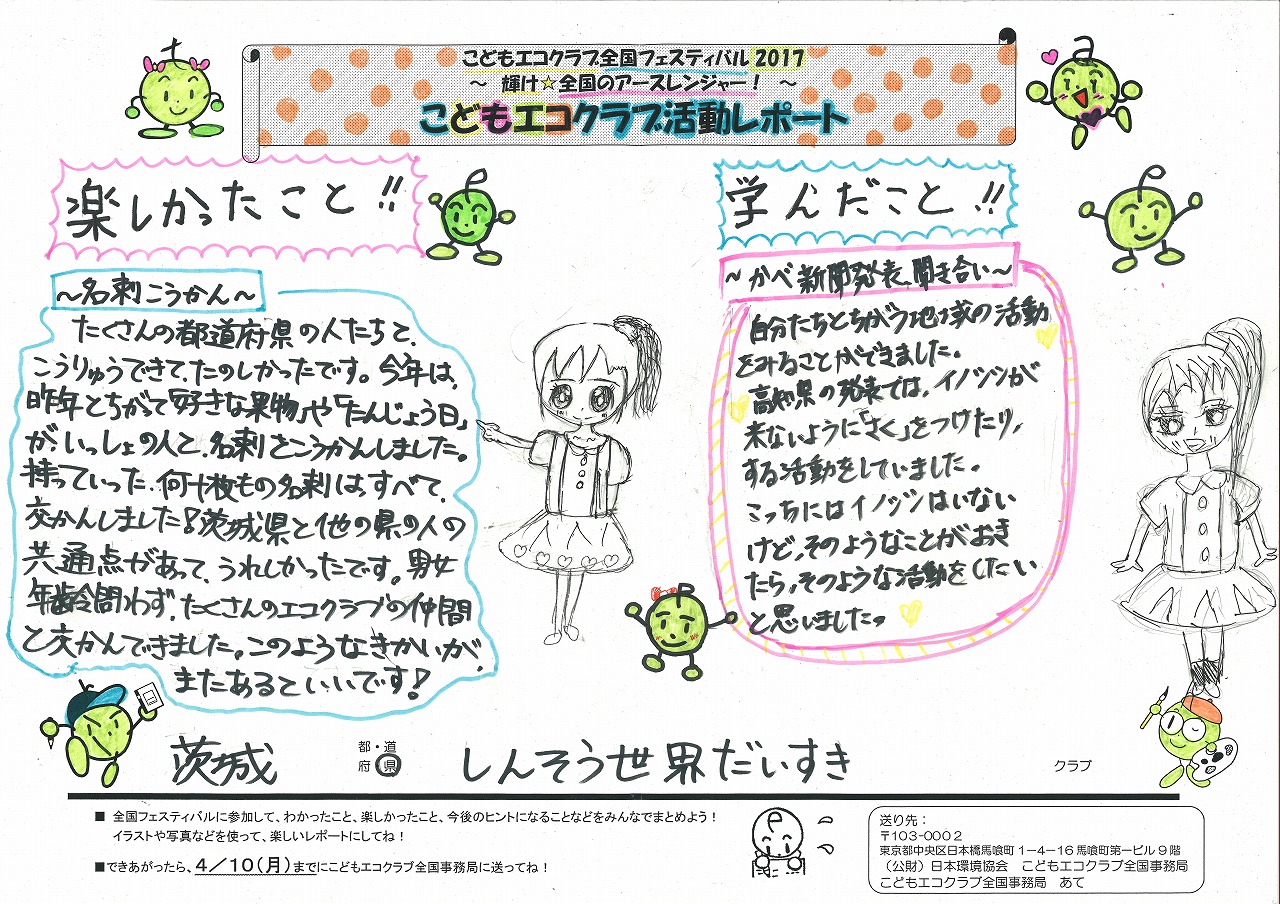 こどもエコクラブ全国フェスティバル 2017
～ 輝け☆全国のアースレンジャー！ ～
こどもエコクラブ活動レポート
楽しかったこと!!
～名刺こうかん～
たくさんの都道府県の人たちと、
こうりゅうできて、たのしかったです。今年は、
昨年とちがって「好きな果物」や「たんじょう日」
が、いっしょの人と、名刺をこうかんしました。
持っていった、何十枚もの名刺は、すべて、
交かんしました!茨城県と他の県の人の
共通点があって、うれしかったです。男女
年齢問わず、たくさんのエコクラブの仲間
と交かんできました。このようなきかいが、
またあるといいです!
学んだこと!!
～かべ新聞発表、聞き合い～
自分たちとちがう地域の活動
をみることができました。
高知県の発表では、イノシシが
来ないように「さく」をつけたり、
する活動をしていました。
こっちにはイノシシはいない
けど、そのようなことがおき
たら、そのような活動をしたい
と思いました。
茨城 都・道府県 しんそう世界だいすき クラブ
■ 全国フェスティバルに参加して、わかったこと、楽しかったこと、今後のヒントになることなどをみんなでまとめよう！
イラストや写真などを使って、楽しいレポートにしてね！
■できあがったら、4／10（月）までにこどもエコクラブ全国事務局に送ってね！
送り先：
〒103-0002
東京都中央区日本橋馬喰町１－４－１６ 馬喰町第一ビル９階
（公財）日本環境協会 こどもエコクラブ全国事務局
こどもエコクラブ全国事務局 あて